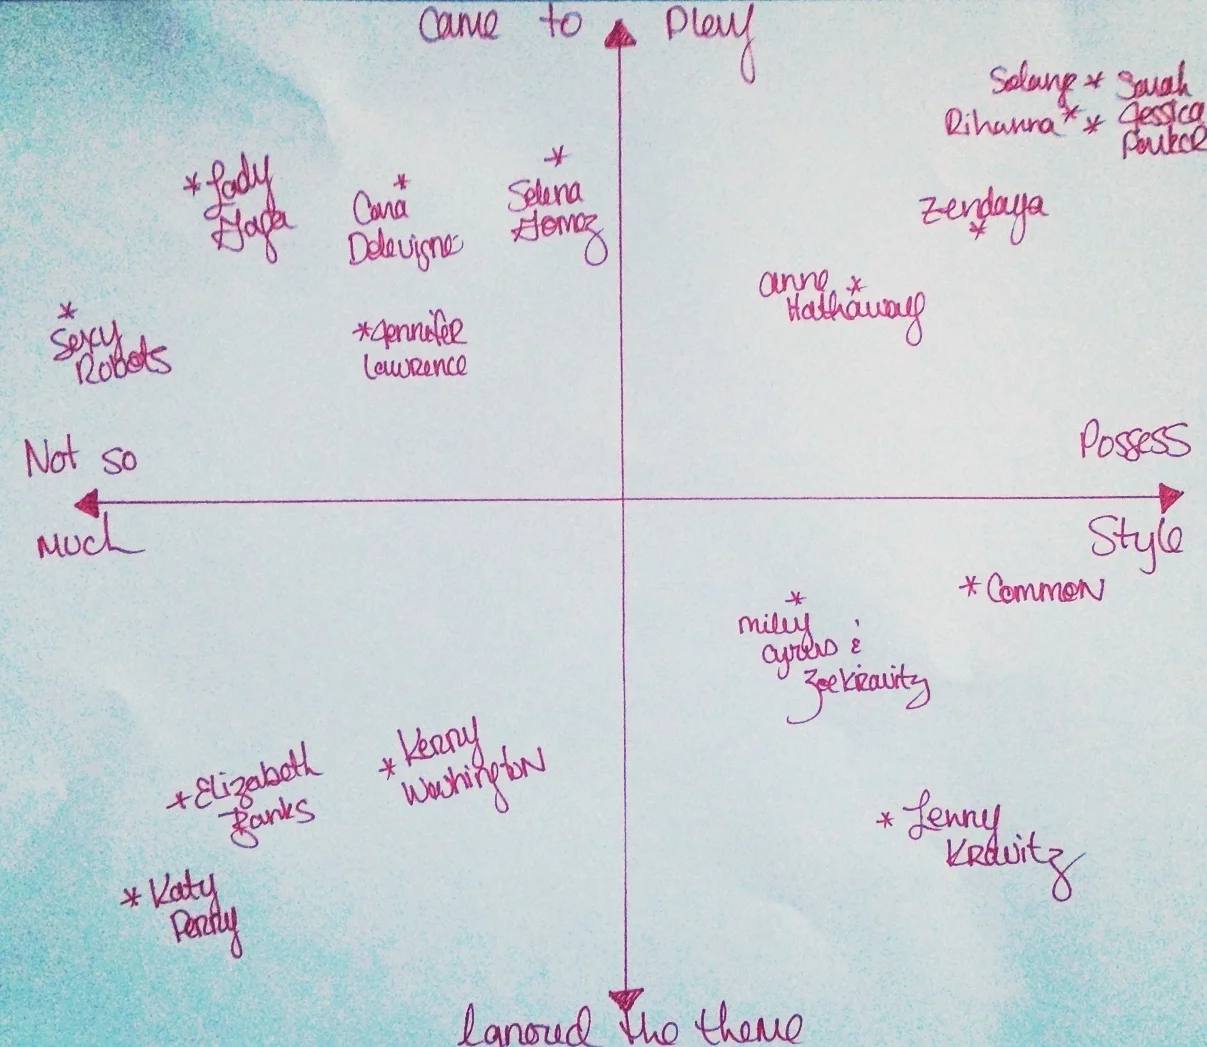 Came to Play
Solange * Sarah
Rihanna * * Jessica
Parker
* Lady
Gaga
*
Cara
Delevigne
*
Selena
Gomez
Zendaya
*
anne *
Hathaway
*
Sexy
Robots
* Jennifer
Lawrence
Not so
Much
Possess
Style
* Common
*
miley
cyrus &
Zoe Kravitz
* Kerry
Washington
* Elizabeth
Banks
* Lenny
Kravitz
* Katy
Perry
Ignored the theme